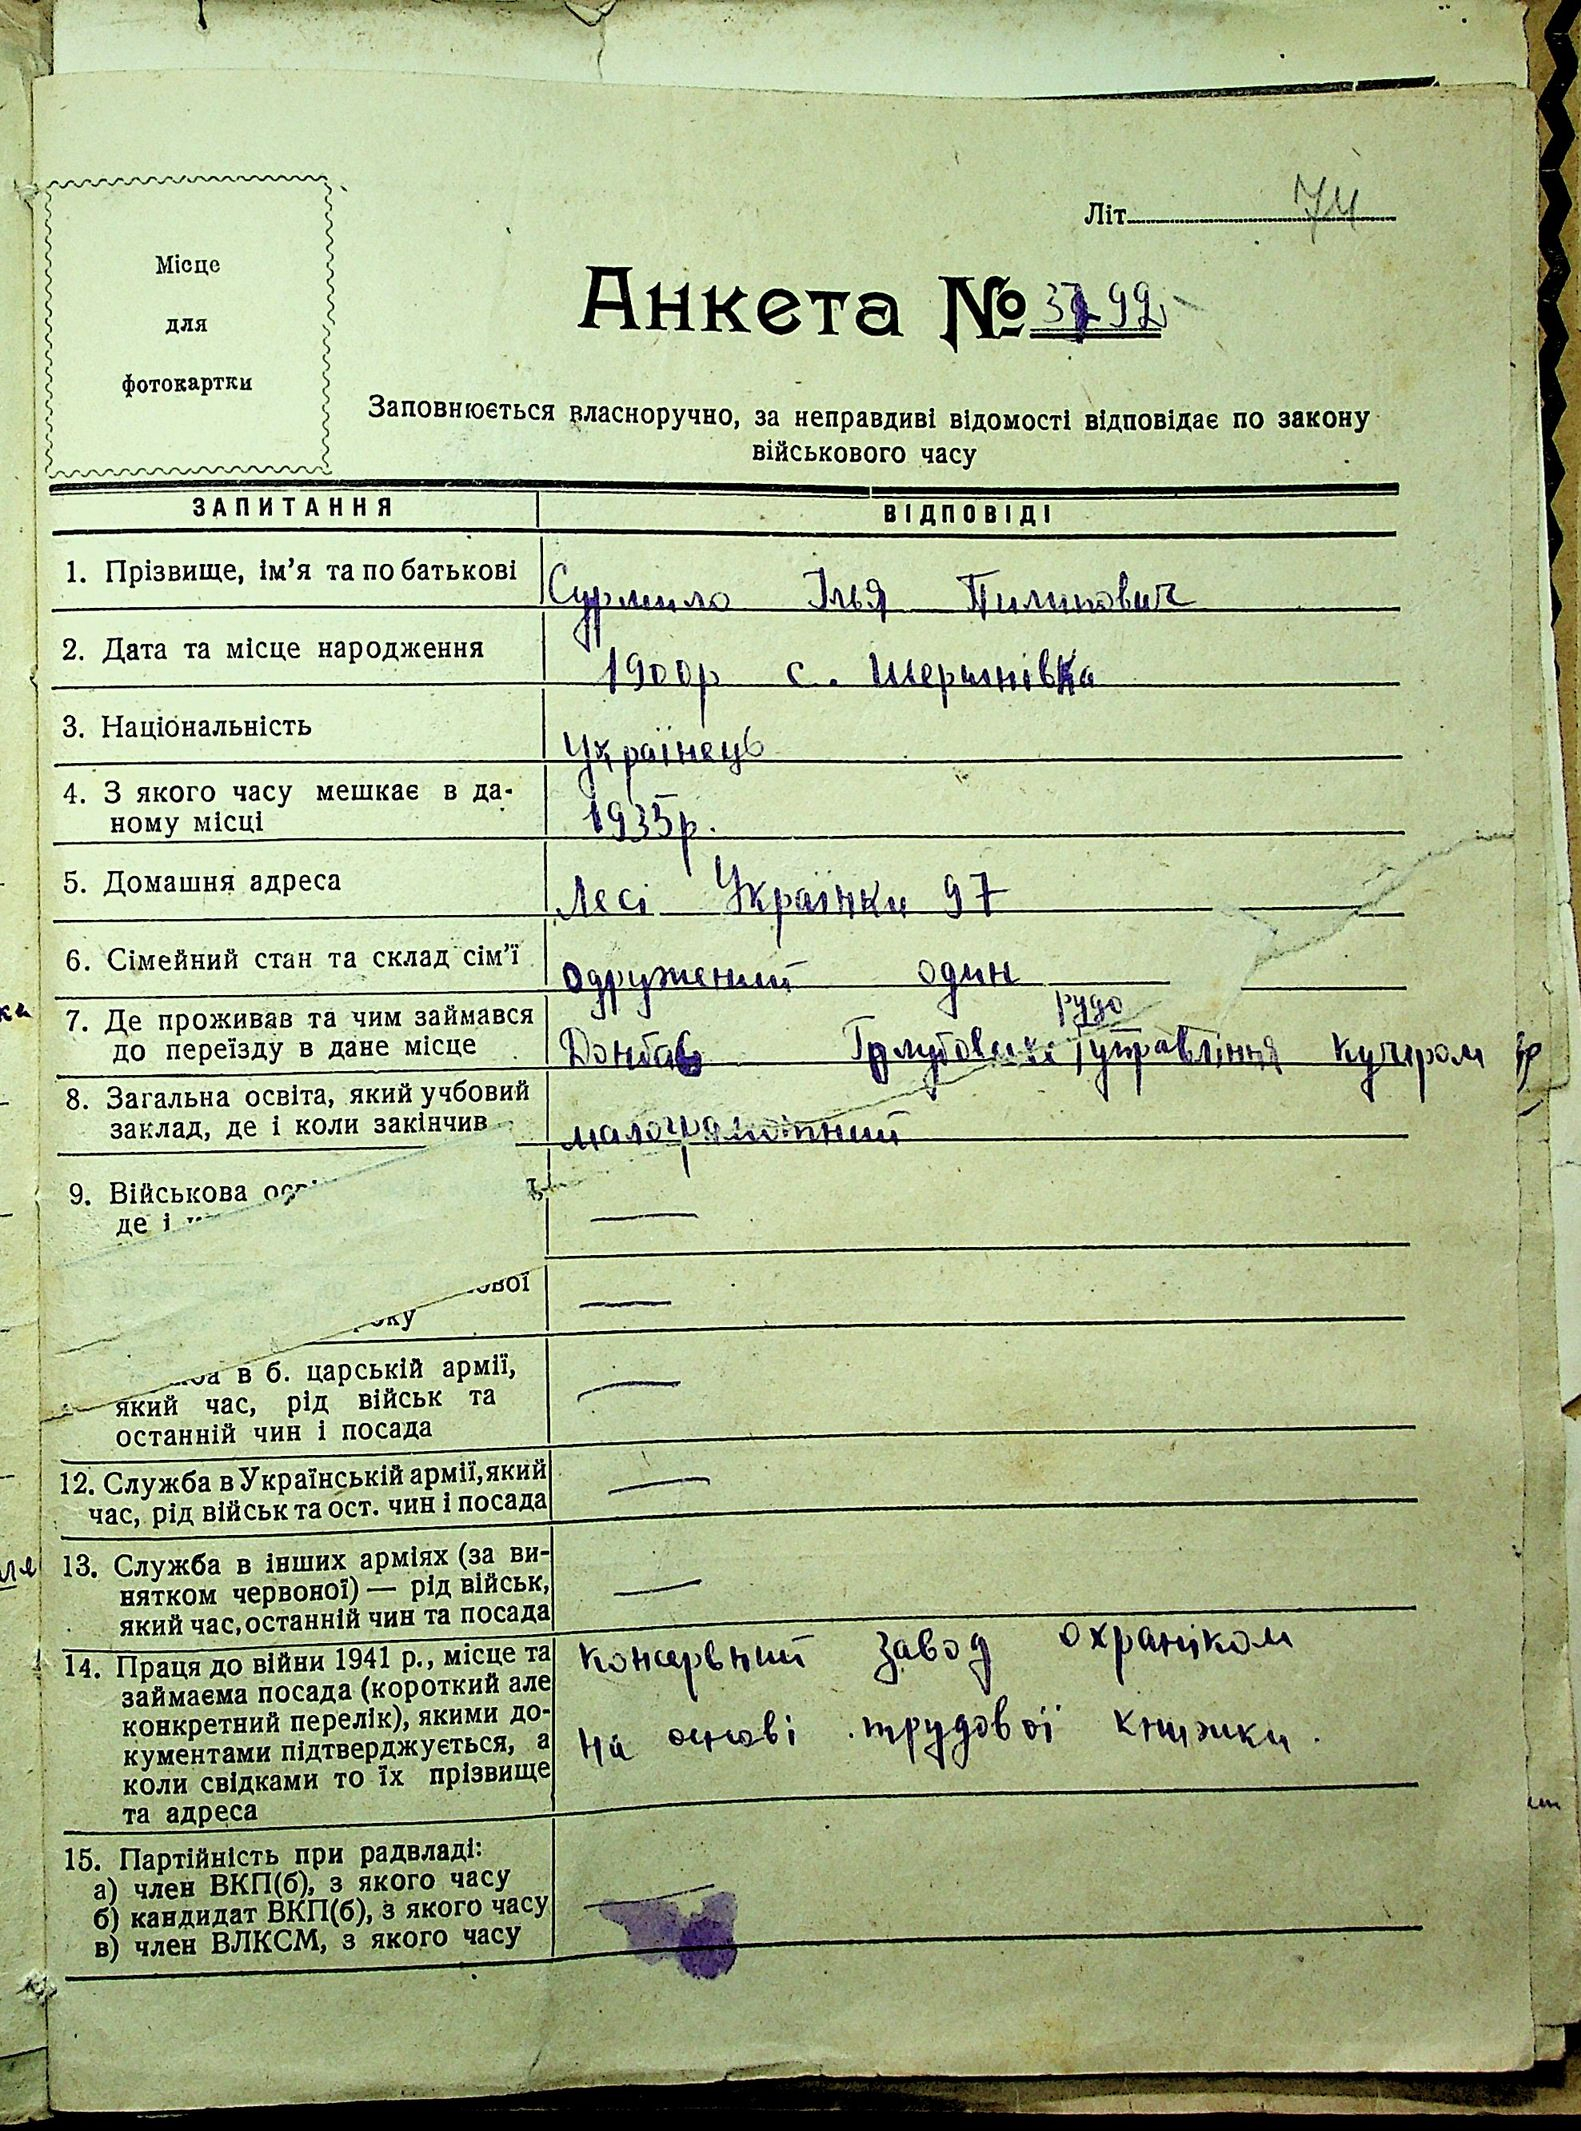 Місце
для
фотокартки
Літ. 74
Анкета № 3792
Заповнюється власноручно, за неправдиві відомості відповідає по закону
військового часу
ЗАПИТАННЯ ВІДПОВІДІ
1. Прізвище, ім'я та по батькові Сурмило Ілья Пилипович
2. Дата та місце народження 1900р с. Шершнівка
3. Національність Українець
4. З якого часу мешкає в да-
ному місці 1935р.
5. Домашня адреса Лесі Українки 97
6. Сімейний стан та склад сім'ї одружений один
рудо
7. Де проживав та чим займався
до переїзду в дане місце Донбас управління кучером
8. Загальна освіта, який учбовий
заклад, де і коли закінчив малограмотний
9. Військова
де і —
—
в б. царській армії,
який час, рід військ та —
останній чин і посада
12. Служба в Українській армії, який
час, рід військ та ост. чин і посада —
13. Служба в інших арміях (за ви-
нятком червоної) — рід військ, —
який час, останній чин та посада
14. Праця до війни 1941 р., місце та Консервний завод охраніком
займаєма посада (короткий але
конкретний перелік), якими до-
кументами підтверджується, а на основі трудової книжки.
коли свідками то їх прізвище
та адреса
15. Партійність при радвладі:
а) член ВКП(б), з якого часу —
б) кандидат ВКП(б), з якого часу
в) член ВЛКСМ, з якого часу